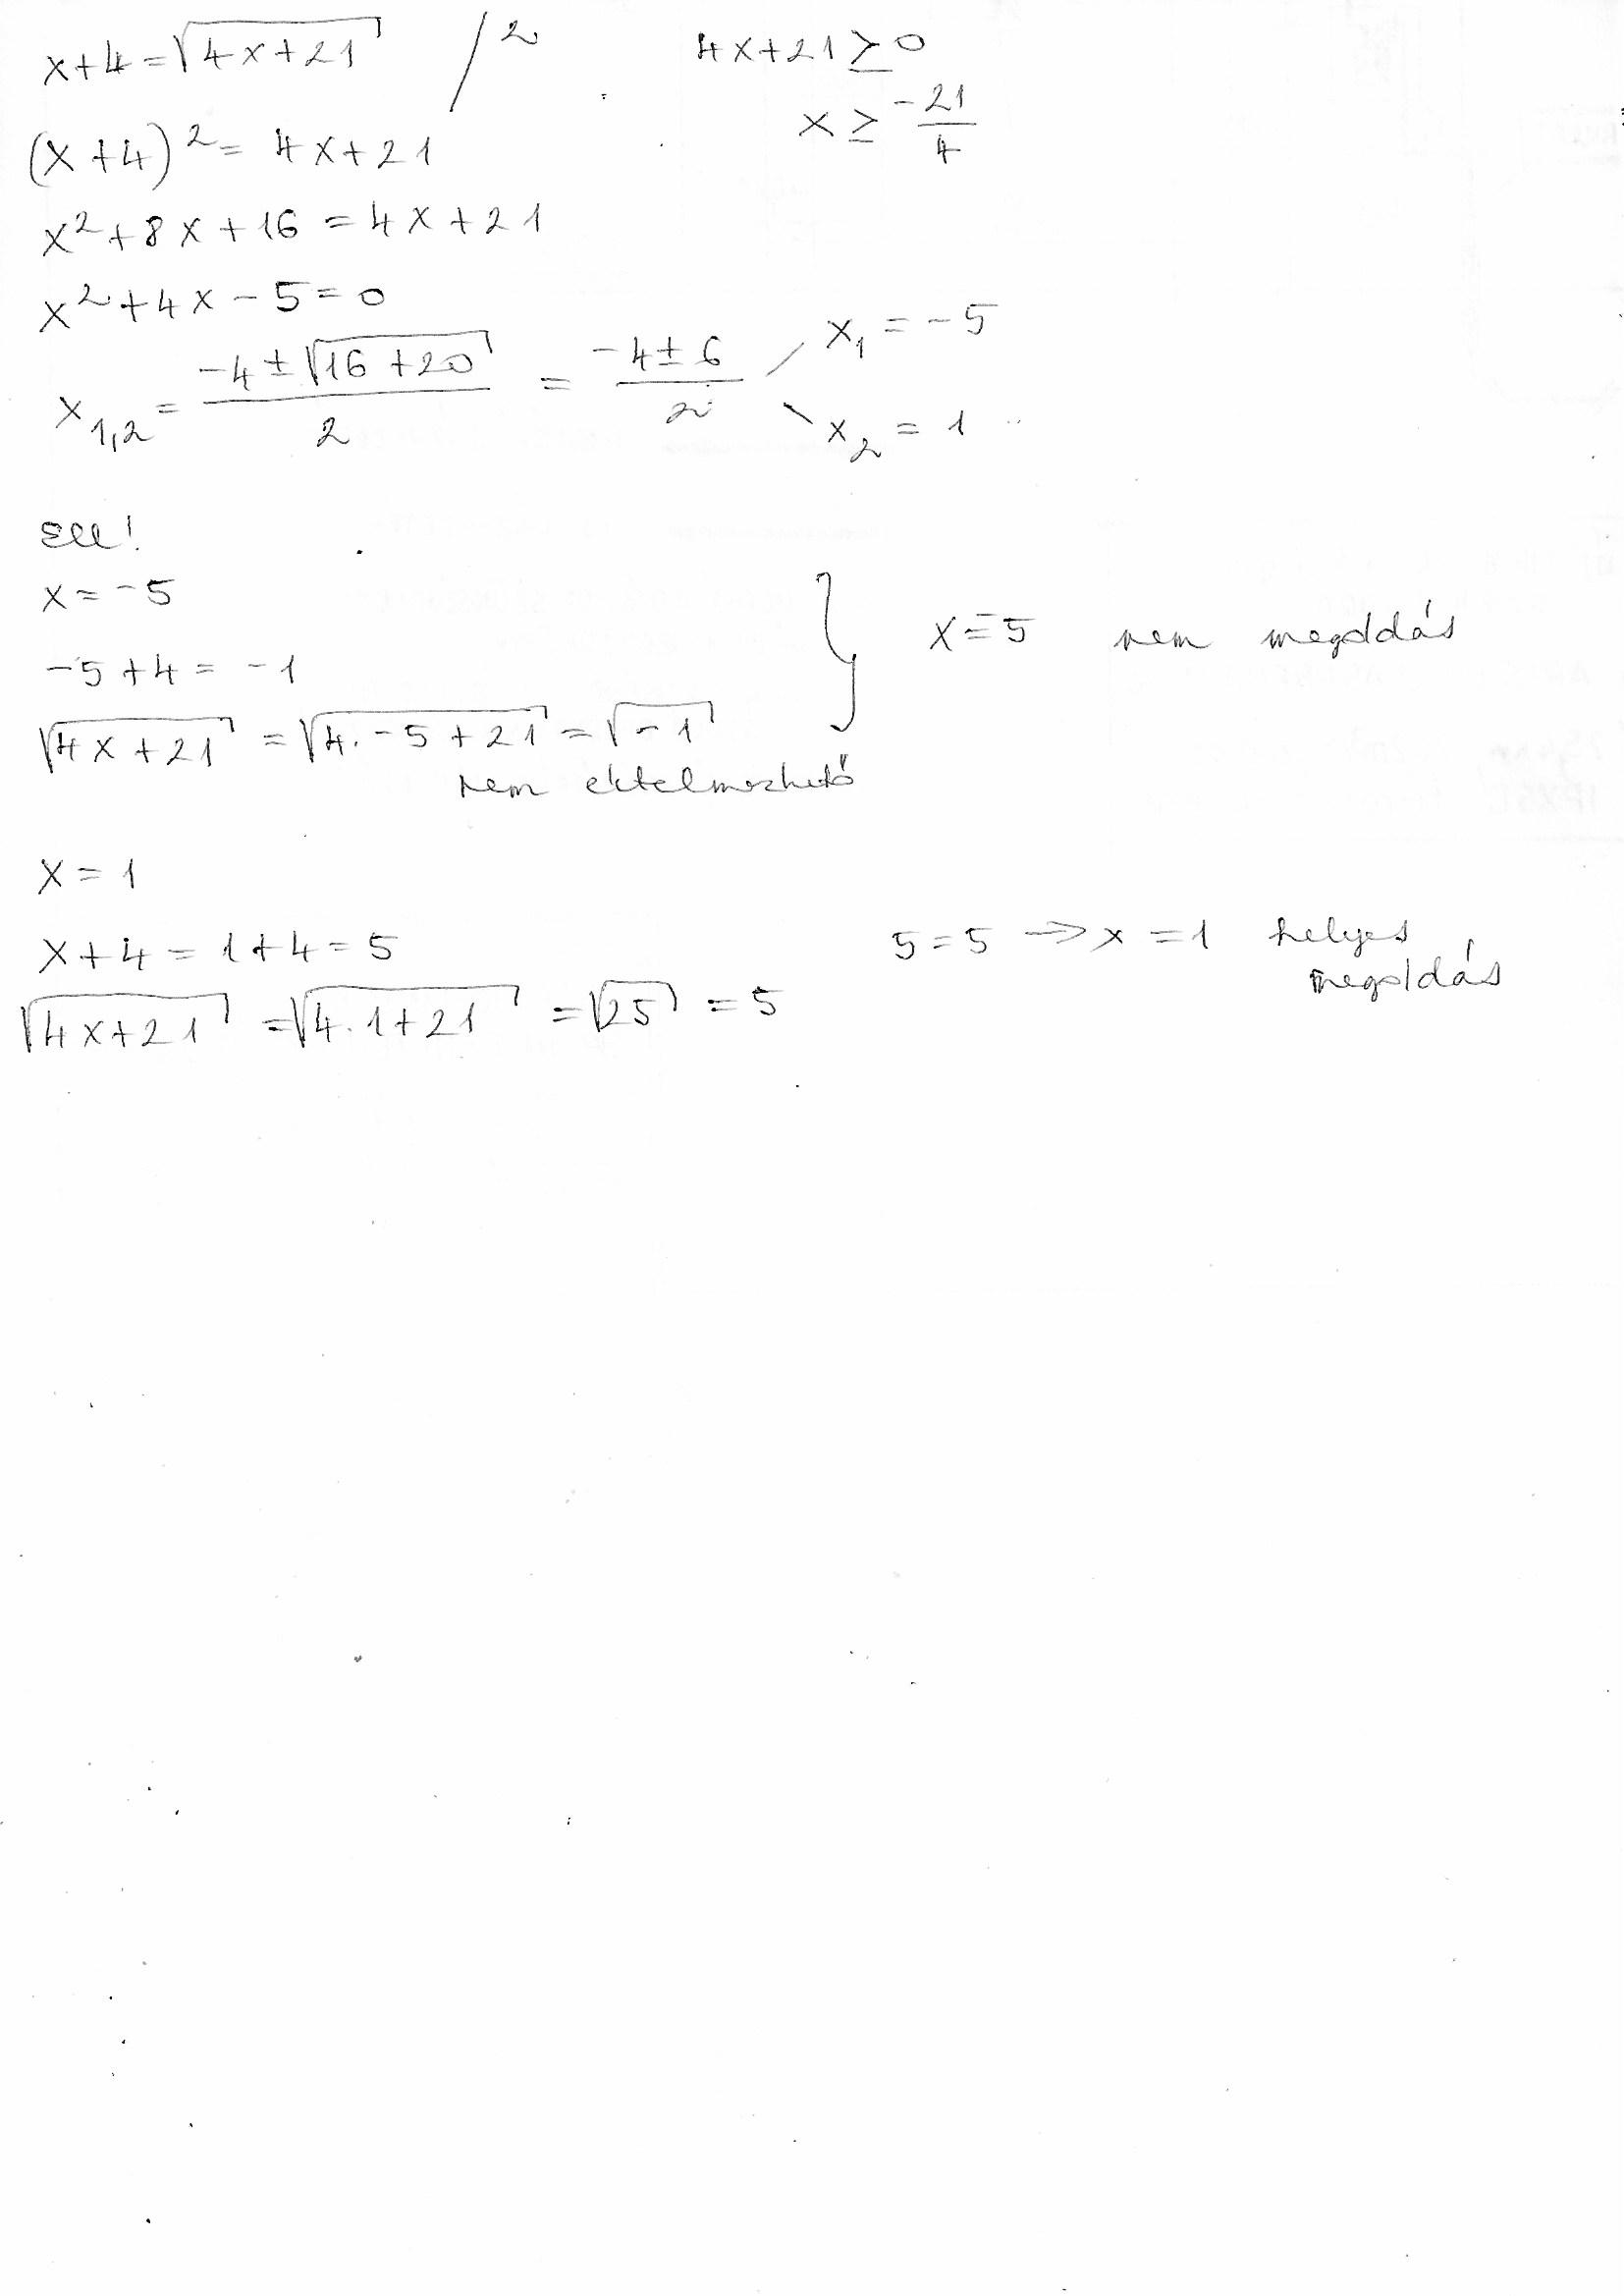 x+4=√(4x+21) /²
4x+21≥0
x≥ -21/4
(x+4)²=4x+21
x²+8x+16=4x+21
x²+4x-5=0
x₁,₂= (-4±√(16+20))/2 = (-4±6)/2
x₁=-5
x₂=1
Ell!
x=-5
-5+4=-1
√(4x+21)=√(4·-5+21)=√(-1)
nem értelmezhető
x=-5 nem megoldás
x=1
x+4=1+4=5
√(4x+21)=√(4·1+21)=√25=5
5=5 → x=1 helyes
megoldás